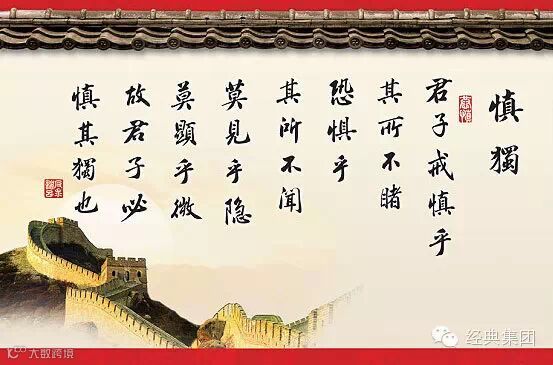 慎獨
君子戒慎乎
其所不睹
恐惧乎
其所不闻
莫見乎隐
莫顯乎微
故君子必
慎其獨也
经典集团
大数跨境